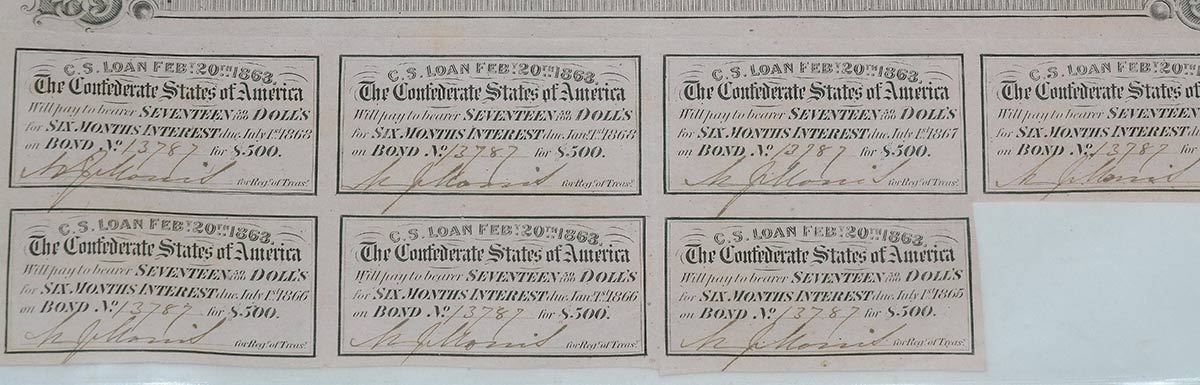 C. S. LOAN FEBY. 20TH 1863.
The Confederate States of America
Will pay to bearer SEVENTEEN 50/100 DOLL'S
for SIX MONTHS INTEREST due July 1st 1868
on BOND No. 13787 for $500.
for Regr. of Treasy.
C. S. LOAN FEBY. 20TH 1863.
The Confederate States of America
Will pay to bearer SEVENTEEN 50/100 DOLL'S
for SIX MONTHS INTEREST due Jany. 1st 1868
on BOND No. 13787 for $500.
for Regr. of Treasy.
C. S. LOAN FEBY. 20TH 1863.
The Confederate States of America
Will pay to bearer SEVENTEEN 50/100 DOLL'S
for SIX MONTHS INTEREST due July 1st 1867
on BOND No. 13787 for $500.
for Regr. of Treasy.
C. S. LOAN FEBY. 20TH
The Confederate States of
Will pay to bearer SEVENTEEN
for SIX MONTHS INTEREST
on BOND No. 13787 for
C. S. LOAN FEBY. 20TH 1863.
The Confederate States of America
Will pay to bearer SEVENTEEN 50/100 DOLL'S
for SIX MONTHS INTEREST due July 1st 1866
on BOND No. 13787 for $500.
for Regr. of Treasy.
C. S. LOAN FEBY. 20TH 1863.
The Confederate States of America
Will pay to bearer SEVENTEEN 50/100 DOLL'S
for SIX MONTHS INTEREST due Jany. 1st 1866
on BOND No. 13787 for $500.
for Regr. of Treasy.
C. S. LOAN FEBY. 20TH 1863.
The Confederate States of America
Will pay to bearer SEVENTEEN 50/100 DOLL'S
for SIX MONTHS INTEREST due July 1st 1865
on BOND No. 13787 for $500.
for Regr. of Treasy.